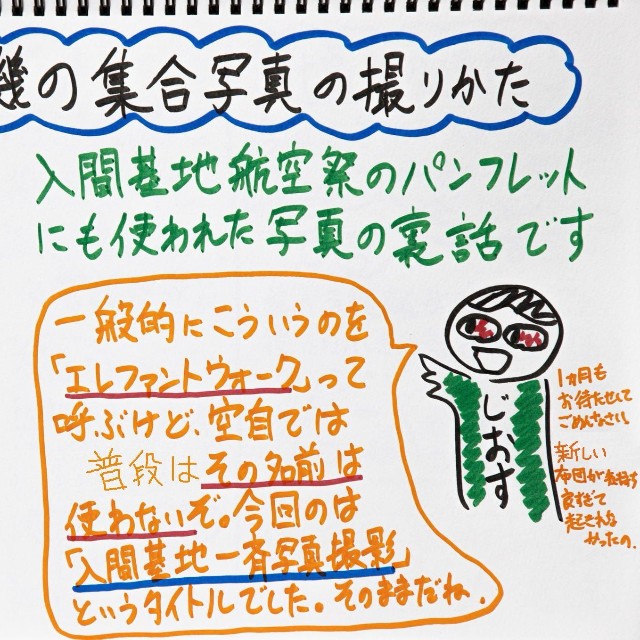 幾の集合写真の撮りかた
入間基地航空祭のパンフレット
にも使われた写真の裏話です
一般的にこういうのを
「エレファントウォーク」って
呼ぶけど、空自では
普段はその名前は
使わないぞ。今回のは
「入間基地一斉写真撮影」
というタイトルでした。そのままだね。
じおす
1ヵ月も
お待たせして
ごめんなさい。
新しい
布団が気持ち
良すぎて
起きれな
かったの。